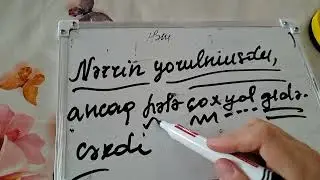 Nərrin yorulmuşdu,
ancaq hələ çox yol gedə-
cəkdi